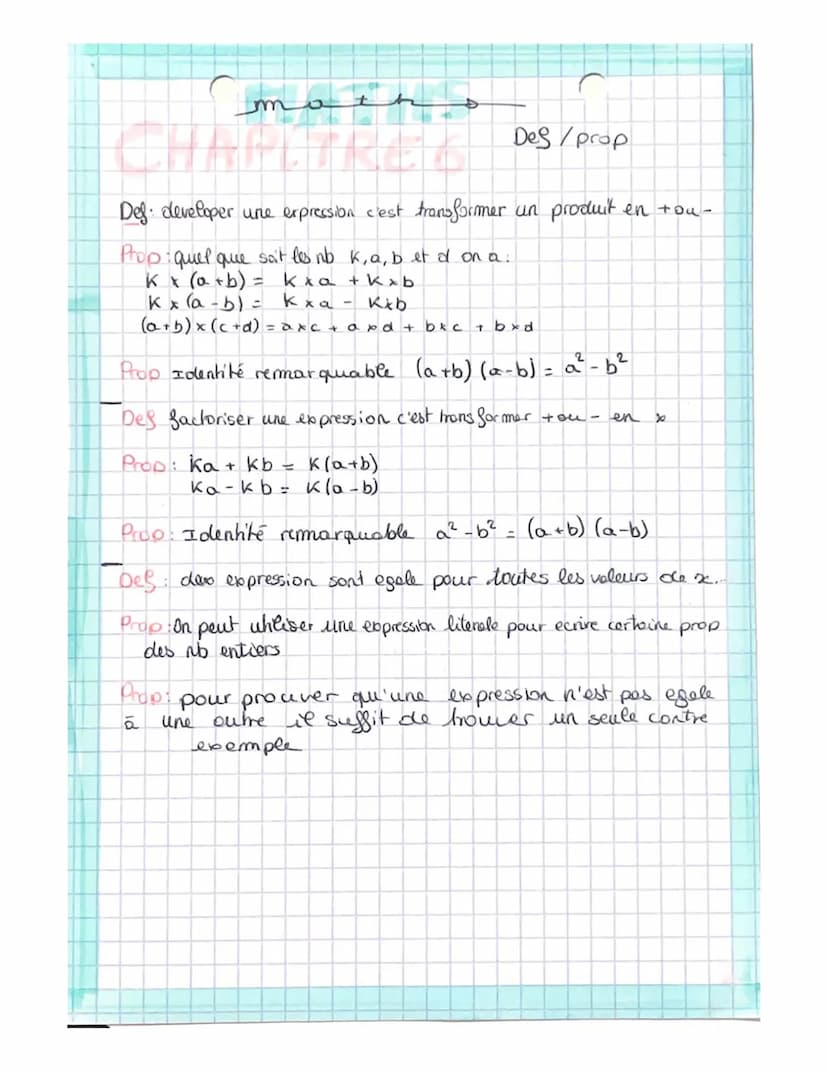 MATHS
math
CHAPITRE 6
Def / prop
Def: developer une expression c'est transformer un produit en + ou -
Prop : quel que soit les nb k, a, b et d on a :
K x (a + b) = K x a + K x b
K x (a - b) = K x a - K x b
(a+b) x (c+d) = a x c + a x d + b x c + b x d
Prop Identité remarquable (a+b) (a-b) = a² - b²
Def factoriser une expression c'est transformer + ou - en x
Prop : Ka + Kb = K(a+b)
Ka - Kb = K(a-b)
Prop : Identité remarquable a² - b² = (a+b) (a-b)
Def : deux expression sont egale pour toutes les valeurs de x.
Prop : On peut utiliser une expression literale pour ecrire certaine prop
des nb entiers
Prop : pour prouver qu'une expression n'est pas egale
à une autre il suffit de trouver un seule contre
exemple